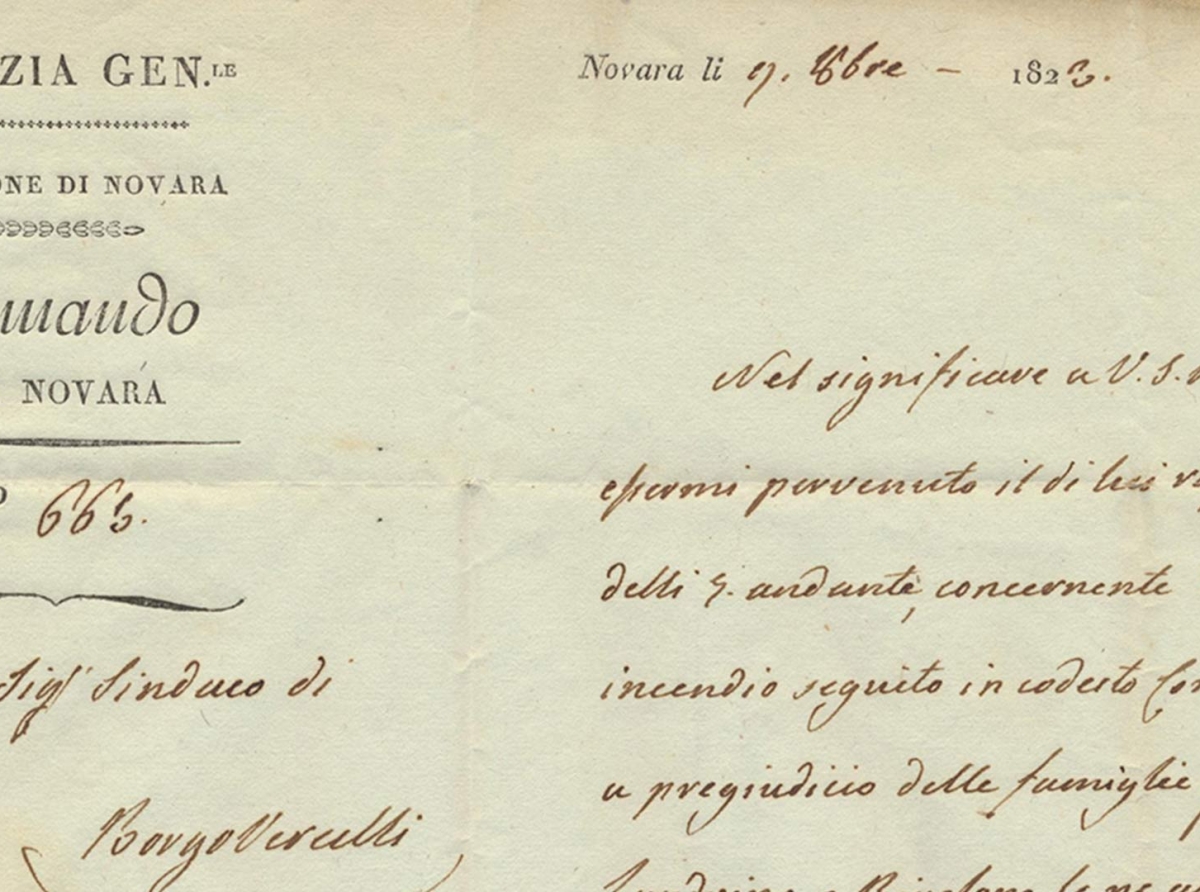 ZIA GEN.LE
ONE DI NOVARA
mando
NOVARA
663.
Sigr Sindaco di
BorgoVercelli
Novara li 9. 8bre - 1823.
Nel significare a V. S.
essermi pervenuto il di lui
delli 5. andante, concernente
incendio seguito in codesto
a pregiudicio delle famiglie